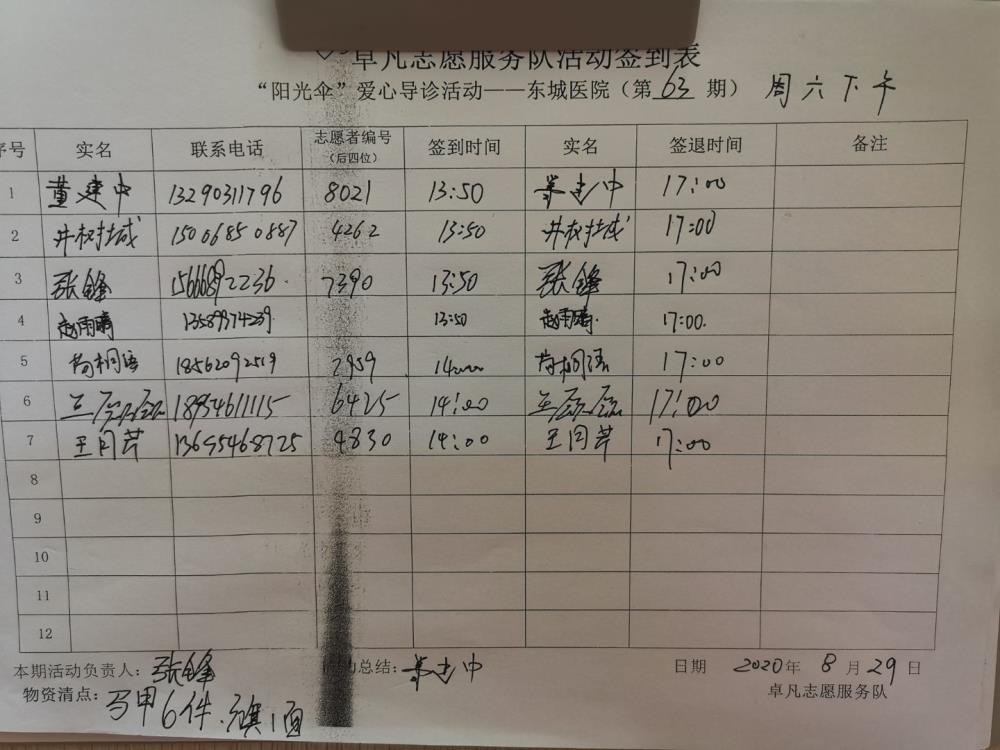 卓凡志愿服务队活动签到表
“阳光伞”爱心导诊活动——东城医院（第 63 期） 周六下午
序号 实名 联系电话 志愿者编号（后四位） 签到时间 实名 签退时间 备注
1 董建中 13290311796 8021 13:50 董建中 17:00
2 井树城 15006850887 4262 13:50 井树城 17:00
3 张锋 15666892236 7390 13:50 张锋 17:00
4 赵雨晴 13589974239 13:50 赵雨晴 17:00.
5 苟桐语 18562092519 2959 14:00 苟桐语 17:00
6 18954611115 6425 14:00 17:00
7 王同芹 13695468725 4830 14:00 王同芹 17:00
8
9
10
11
12
本期活动负责人：张锋 活动总结：董建中 日期 2020年 8 月 29 日
物资清点：马甲6件.旗1面 卓凡志愿服务队